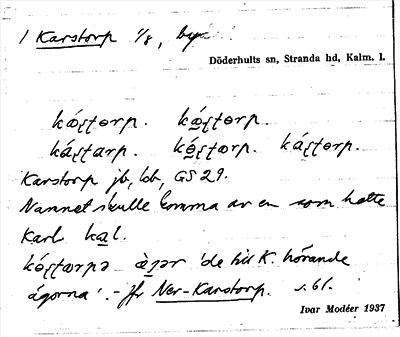 1 Karstorp 1/8, by
Döderhults sn, Stranda hd, Kalm. l.
káʂʈɵrp. kɷ́ʂʈɵrp.
káʂʈarp. kɵ́ʂʈærp. káʂʈɵrp.
Karstorp jb, kb, GS 29.
Namnet skulle komma av en som hette
Karl kal.
àgər 'de till K. hörande
ägorna'. – jfr Ner-Karstorp. s. 61.
Ivar Modéer 1937